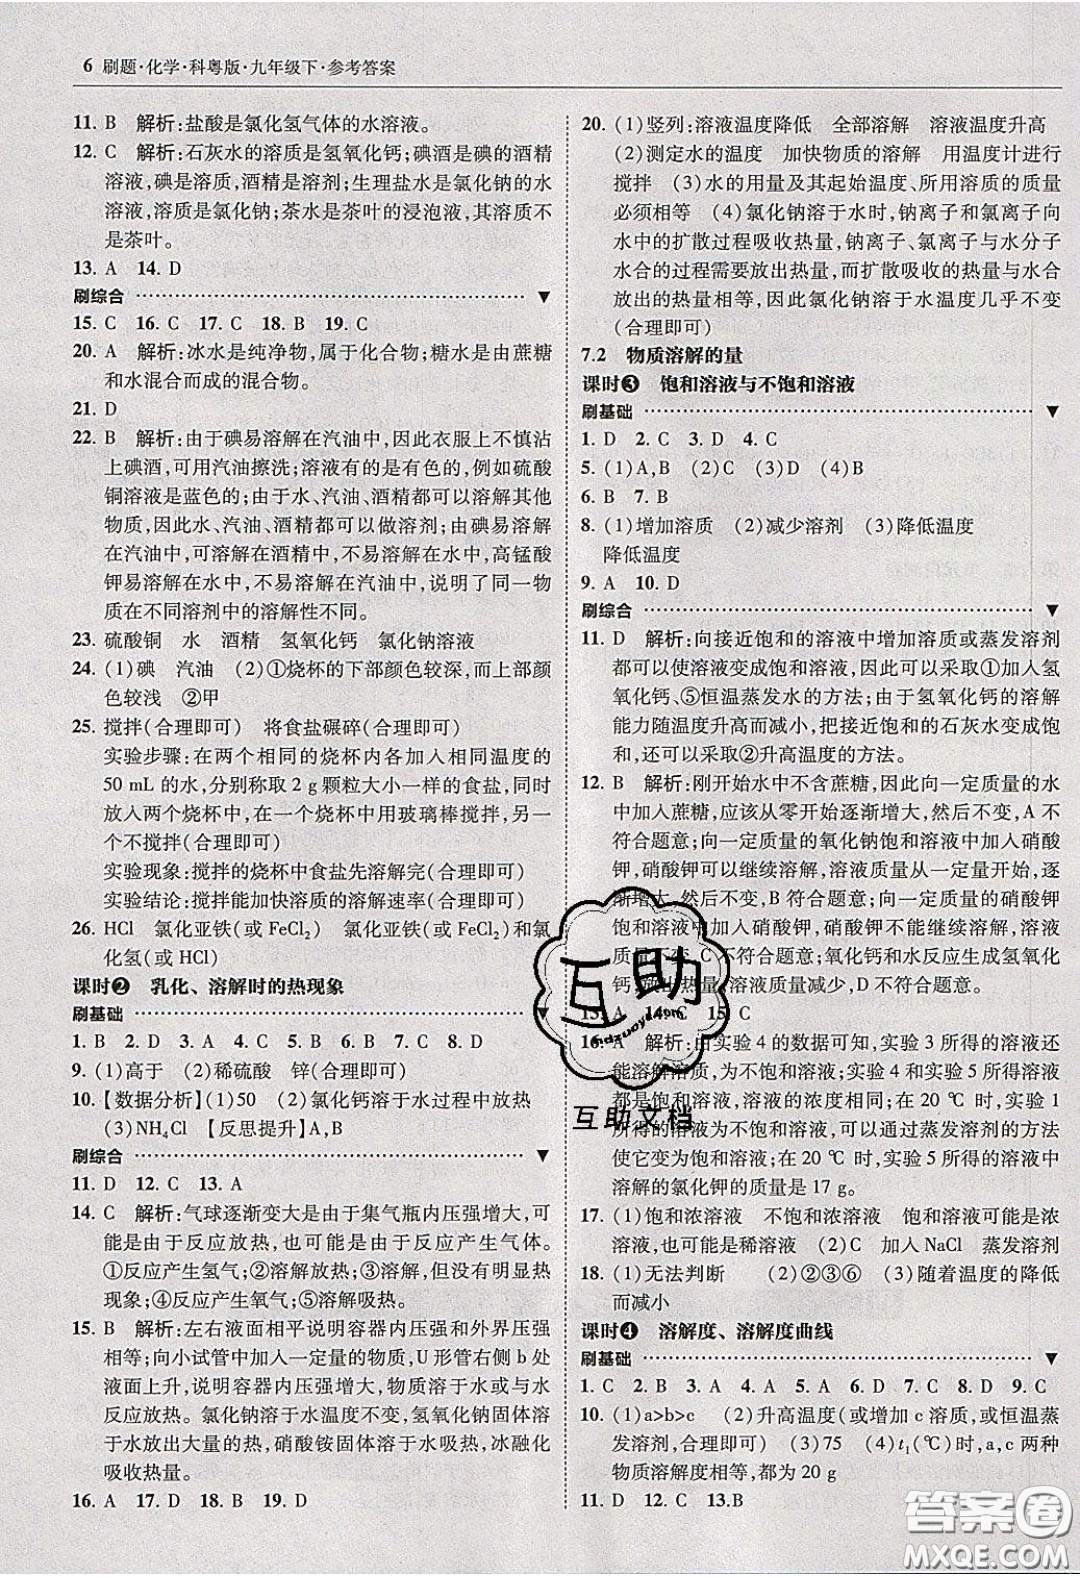 6 刷题·化学·科粤版·九年级下·参考答案
11. B 解析:盐酸是氯化氢气体的水溶液。
12. C 解析:石灰水的溶质是氢氧化钙;碘酒是碘的酒精
溶液,碘是溶质,酒精是溶剂;生理盐水是氯化钠的水
溶液,溶质是氯化钠;茶水是茶叶的浸泡液,其溶质不
是茶叶。
13. A 14. D
刷综合
15. C 16. C 17. C 18. B 19. C
20. A 解析:冰水是纯净物,属于化合物;糖水是由蔗糖
和水混合而成的混合物。
21. D
22. B 解析:由于碘易溶解在汽油中,因此衣服上不慎沾
上碘酒,可用汽油擦洗;溶液有的是有色的,例如硫酸
铜溶液是蓝色的;由于水、汽油、酒精都可以溶解其他
物质,因此水、汽油、酒精都可以做溶剂;由碘易溶解
在汽油中,可溶解在酒精中,不易溶解在水中,高锰酸
钾易溶解在水中,不易溶解在汽油中,说明了同一物
质在不同溶剂中的溶解性不同。
23. 硫酸铜 水 酒精 氢氧化钙 氯化钠溶液
24. (1)碘 汽油 (2)①烧杯的下部颜色较深,而上部颜
色较浅 ②甲
25. 搅拌(合理即可) 将食盐碾碎(合理即可)
实验步骤:在两个相同的烧杯内各加入相同温度的
50 mL 的水,分别称取 2 g 颗粒大小一样的食盐,同时
放入两个烧杯中,在一个烧杯中用玻璃棒搅拌,另一
个不搅拌(合理即可)
实验现象:搅拌的烧杯中食盐先溶解完(合理即可)
实验结论:搅拌能加快溶质的溶解速率(合理即可)
26. HCl 氯化亚铁(或 FeCl₂) 氯化亚铁(或 FeCl₂)和氯
化氢(或 HCl)
课时❷ 乳化、溶解时的热现象
刷基础
1. B 2. D 3. A 4. D 5. D 6. B 7. C 8. B
9. (1)高于 (2)稀硫酸 锌(合理即可)
10.【数据分析】(1)50 (2)氯化钙溶于水过程中放热
(3)NH₄Cl 【反思提升】A,B
刷综合
11. D 12. C 13. A
14. C 解析:气球逐渐变大是由于集气瓶内压强增大,可
能是由于反应放热,也可能是由于反应产生气体。
①反应产生氢气;②溶解放热;③溶解,但没有明显热
现象;④反应产生氧气;⑤溶解吸热。
15. B 解析:左右液面相平说明容器内压强和外界压强
相等;向小试管中加入一定量的物质,U 形管右侧 b 处
液面上升,说明容器内压强增大,物质溶于水或与水反
应放热。氯化钠溶于水温度不变,氢氧化钠固体溶于
水放出大量的热,硝酸铵固体溶于水吸热,冰融化
吸收热量。
16. A 17. D 18. B 19. D
20. (1)竖列:溶液温度降低 全部溶解 溶液温度升高
(2)测定水的温度 加快物质的溶解 用温度计进行
搅拌 (3)水的用量及其起始温度、所用溶质的质量
必须相等 (4)氯化钠溶于水时,钠离子和氯离子向
水中的扩散过程吸收热量,钠离子、氯离子与水分子
水合的过程需要放出热量,而扩散吸收的热量与水合
放出的热量相等,因此氯化钠溶于水温度几乎不变
(合理即可)
7.2 物质溶解的量
课时❸ 饱和溶液与不饱和溶液
刷基础
1. D 2. C 3. D 4. C
5. (1)A,B (2)C (3)D (4)B
6. B 7. B
8. (1)增加溶质 (2)减少溶剂 (3)降低温度
降低温度
9. A 10. D
刷综合
11. D 解析:向接近饱和的溶液中增加溶质或蒸发溶剂
都可以使溶液变成饱和溶液,因此可以采取①加入氢
氧化钙、⑤恒温蒸发水的方法;由于氢氧化钙的溶解
能力随温度升高而减小,把接近饱和的石灰水变成饱
和,还可以采取②升高温度的方法。
12. B 解析:刚开始水中不含蔗糖,因此向一定质量的水
中加入蔗糖,应该从零开始逐渐增大,然后不变,A 不
符合题意;向一定质量的氧化钠饱和溶液中加入硝酸
钾,硝酸钾可以继续溶解,溶液从一定质量开始,逐
渐增大,然后不变,B 符合题意;向一定质量的硝酸钾
饱和溶液中加入硝酸钾,硝酸钾不能继续溶解,溶液
质量不变,C 不符合题意;氧化钙与水反应生成氢氧化
钙,放出热量,溶液质量减少,D 不符合题意。
13. A 14. C 15. C
16. A 解析:由实验 4 的数据可知,实验 3 所得的溶液还
能溶解溶质,为不饱和溶液;实验 4 和实验 5 所得的溶
液溶解的溶质质量相等,为饱和溶液;在 20 ℃ 时,实验 1
所得的溶液为不饱和溶液,可以通过蒸发溶剂的方法
使它变为饱和溶液;在 20 ℃ 时,实验 5 所得的溶液中
溶解的氯化钾的质量是 17 g。
17. (1)饱和浓溶液 不饱和浓溶液 饱和溶液可能是浓
溶液,也可能是稀溶液 (2)C 加入 NaCl 蒸发溶剂
18. (1)无法判断 (2)②③⑥ (3)随着温度的降低
而减小
课时❹ 溶解度、溶解度曲线
刷基础
1. C 2. B 3. C 4. B 5. D 6. D 7. B 8. D 9. C
10. (1)a>b>c (2)升高温度(或增加 c 溶质,或恒温蒸
发溶剂,合理即可) (3)75 (4)t₁(℃)时,a,c 两种
物质溶解度相等,都为 20 g
11. D 12. C 13.B
互助
互助文档
答案圈
MXQE.COM